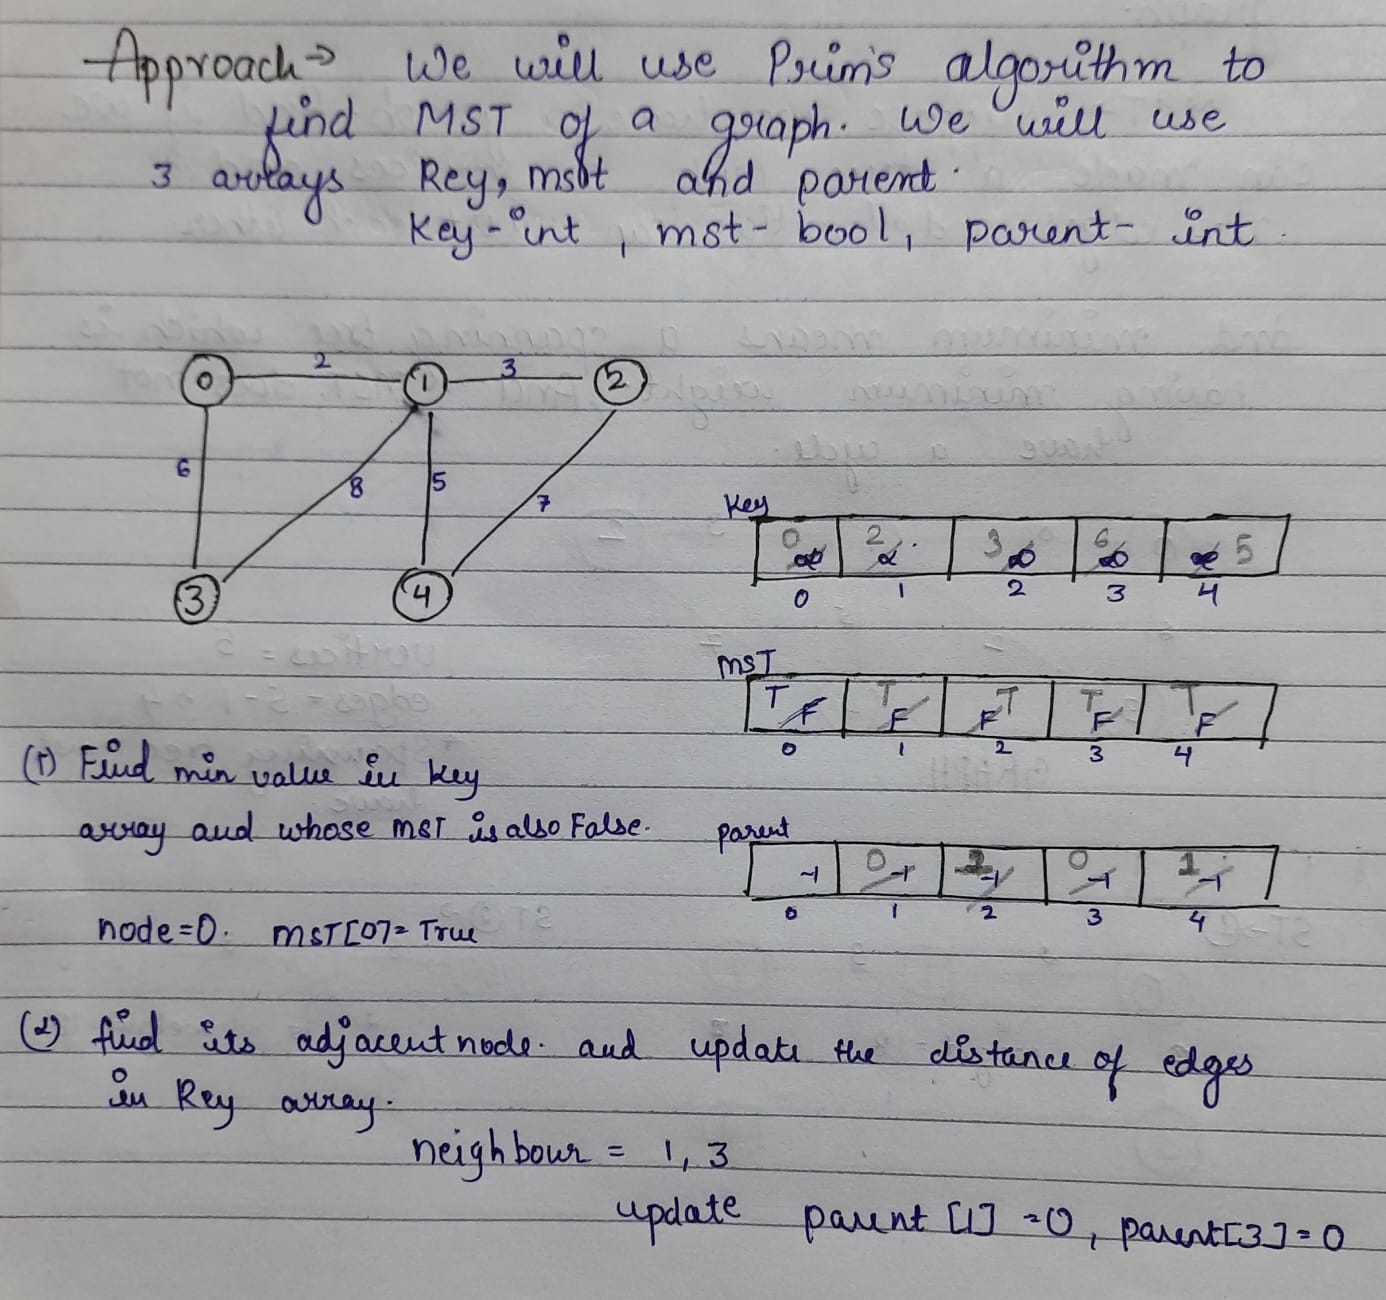 Approach → We will use Prim's algorithm to
find MST of a graph. We will use
3 arrays Key, mst and parent.
Key - int, mst - bool, parent - int.
0 2 1 3 2
6 8 5 7
3 4
Key
0 ∞ 2 ∞ 3 ∞ 6 ∞ ∞ 5
0 1 2 3 4
MST
T F T F F T T F T F
0 1 2 3 4
(1) Find min value in key
array and whose MST is also False.
parent
-1 0 -1 -1 0 -1 1 -1
0 1 2 3 4
node=0. MST[0]= True
(2) find its adjacent node. and update the distance of edges
in Key array.
neighbour = 1, 3
update parent [1] =0, parent[3]=0